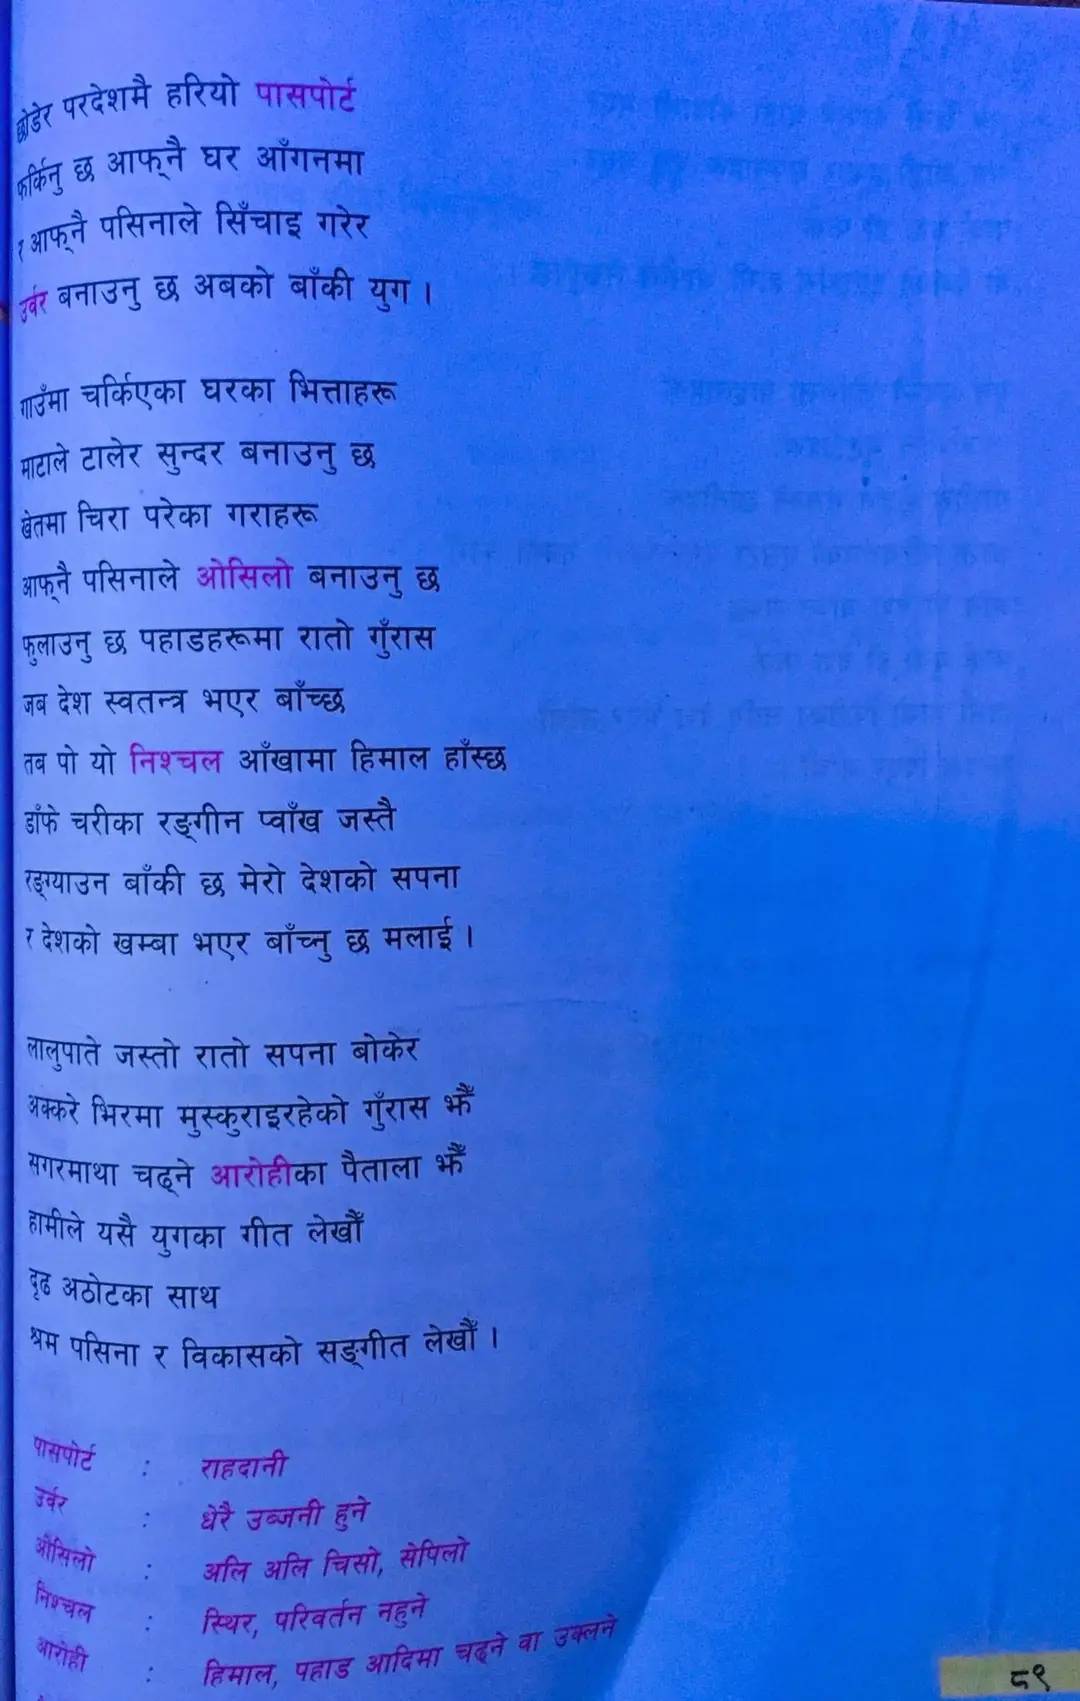 छोडेर परदेशमै हरियो पासपोर्ट
फर्किनु छ आफ्नै घर आँगनमा
र आफ्नै पसिनाले सिँचाइ गरेर
उर्वर बनाउनु छ अबको बाँकी युग ।
गाउँमा चर्किएका घरका भित्ताहरू
माटाले टालेर सुन्दर बनाउनु छ
खेतमा चिरा परेका गराहरू
आफ्नै पसिनाले ओसिलो बनाउनु छ
फुलाउनु छ पहाडहरूमा रातो गुँरास
जब देश स्वतन्त्र भएर बाँच्छ
तब पो यो निश्चल आँखामा हिमाल हाँस्छ
डाँफे चरीका रङ्गीन प्वाँख जस्तै
रङ्ग्याउन बाँकी छ मेरो देशको सपना
र देशको खम्बा भएर बाँच्नु छ मलाई ।
लालुपाते जस्तो रातो सपना बोकेर
अक्करे भिरमा मुस्कुराइरहेको गुँरास झैँ
सगरमाथा चढ्ने आरोहीका पैताला झैँ
हामीले यसै युगका गीत लेखौँ
दृढ अठोटका साथ
श्रम पसिना र विकासको सङ्गीत लेखौँ ।
पासपोर्ट : राहदानी
उर्वर : धेरै उब्जनी हुने
ओसिलो : अलि अलि चिसो, सेपिलो
निश्चल : स्थिर, परिवर्तन नहुने
आरोही : हिमाल, पहाड आदिमा चढ्ने वा उक्लने
८९